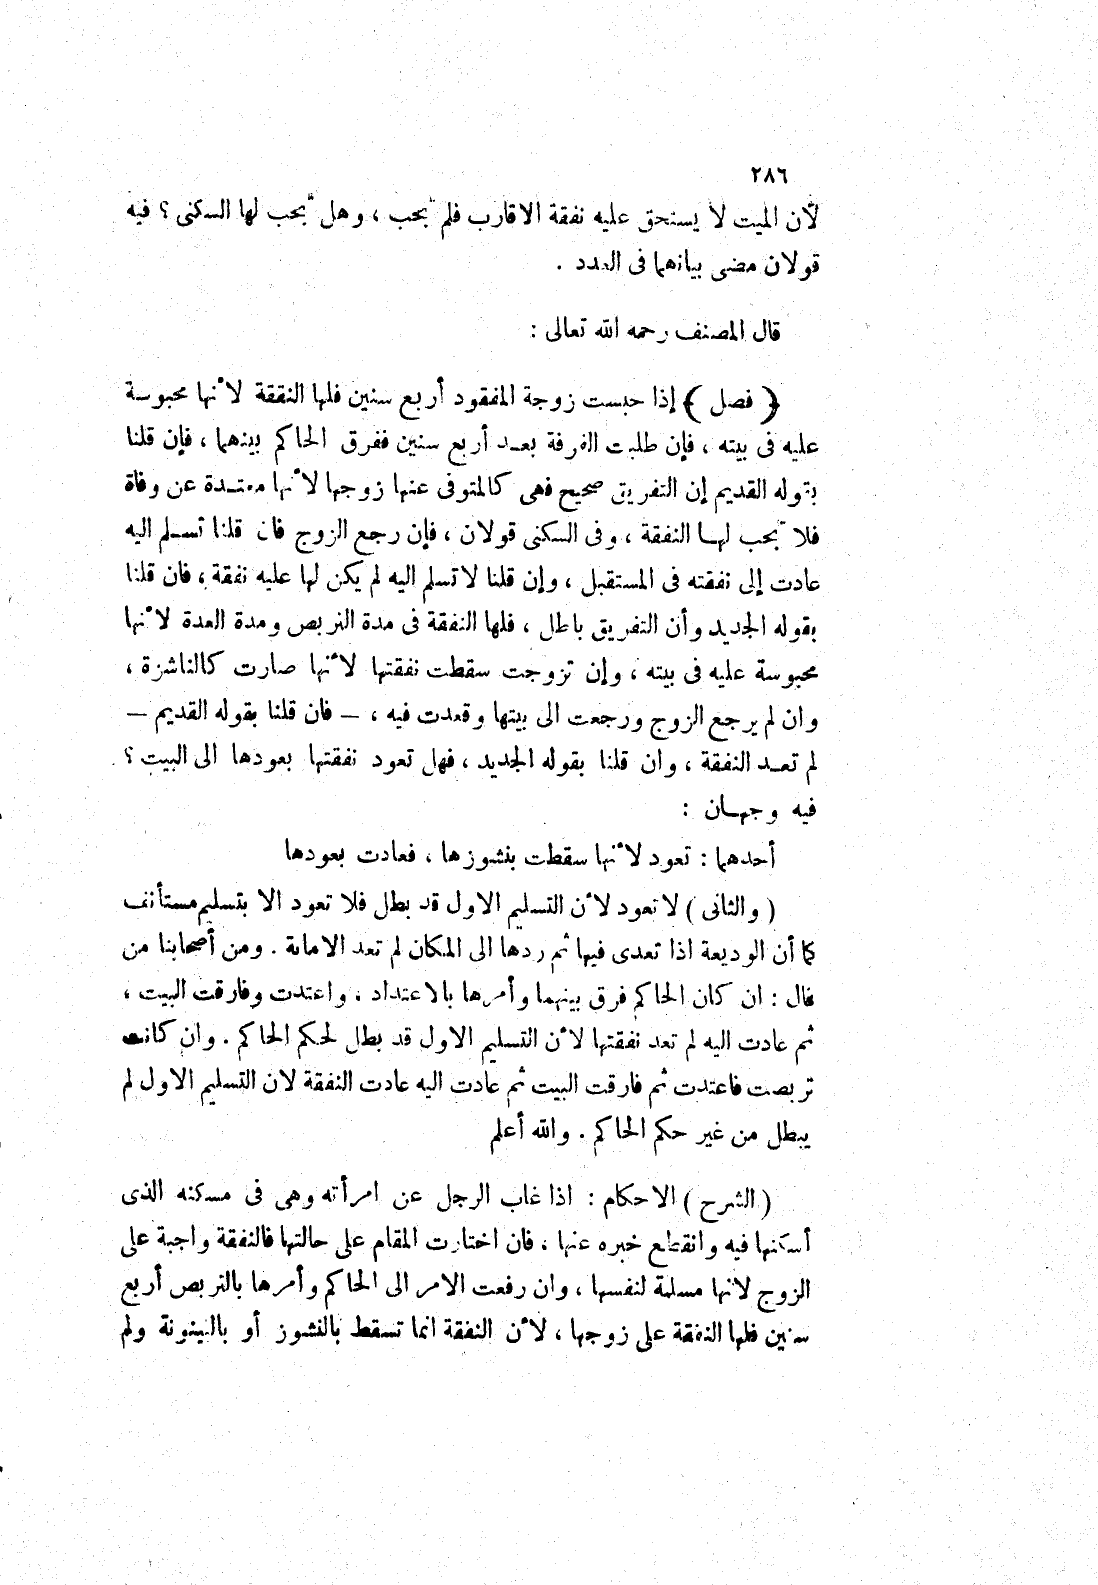 ٢٨٦
لأن الميت لا يستحق عليه نفقة الاقارب فلم تجب ، وهل تجب لها السكنى ؟ فيه
قولان مضى بيانهما فى العدد .
قال المصنف رحمه الله تعالى :
( فصل ) إذا حبست زوجة المفقود أربع سنين فلها النفقة لأنها محبوسة
عليه فى بيته ، فإن طلبت الفرقة بعد أربع سنين ففرق الحاكم بينهما ، فإن قلنا
بقوله القديم إن التفريق صحيح فهى كالمتوفى عنها زوجها لأنها معتدة عن وفاة
فلا تجب لها النفقة ، وفى السكنى قولان ، فإن رجع الزوج فان قلنا تسلم اليه
عادت إلى نفقته فى المستقبل ، وإن قلنا لا تسلم اليه لم يكن لها عليه نفقة ، فان قلنا
بقوله الجديد وأن التفريق باطل ، فلها النفقة فى مدة التربص ومدة العدة لأنها
محبوسة عليه فى بيته ، وإن تزوجت سقطت نفقتها لأنها صارت كالناشزة ،
وان لم يرجع الزوج ورجعت الى بيتها وقعدت فيه ، – فان قلنا بقوله القديم –
لم تعد النفقة ، وان قلنا بقوله الجديد ، فهل تعود نفقتها بعودها الى البيت ؟
فيه وجهان :
أحدهما : تعود لأنها سقطت بنشوزها ، فعادت بعودها
( والثانى ) لا تعود لأن التسليم الاول قد بطل فلا تعود الا بتسليم مستأنف
كما أن الوديعة اذا تعدى فيها ثم ردها الى المكان لم تعد الامانة . ومن أصحابنا من
قال : ان كان الحاكم فرق بينهما وأمرها بالاعتداد ، واعتدت وفارقت البيت ،
ثم عادت اليه لم تعد نفقتها لأن التسليم الاول قد بطل لحكم الحاكم . وان كانت
تربصت فاعتدت ثم فارقت البيت ثم عادت اليه عادت النفقة لان التسليم الاول لم
يبطل من غير حكم الحاكم . والله أعلم
( الشرح ) الاحكام : اذا غاب الرجل عن امرأته وهى فى مسكنه الذى
أسكنها فيه وانقطع خبره عنها ، فان اختارت المقام على حالتها فالنفقة واجبة على
الزوج لانها مسلمة لنفسها ، وان رفعت الامر الى الحاكم وأمرها بالتربص أربع
سنين فلها النفقة على زوجها ، لأن النفقة انما تسقط بالنشوز أو بالبينونة ولم